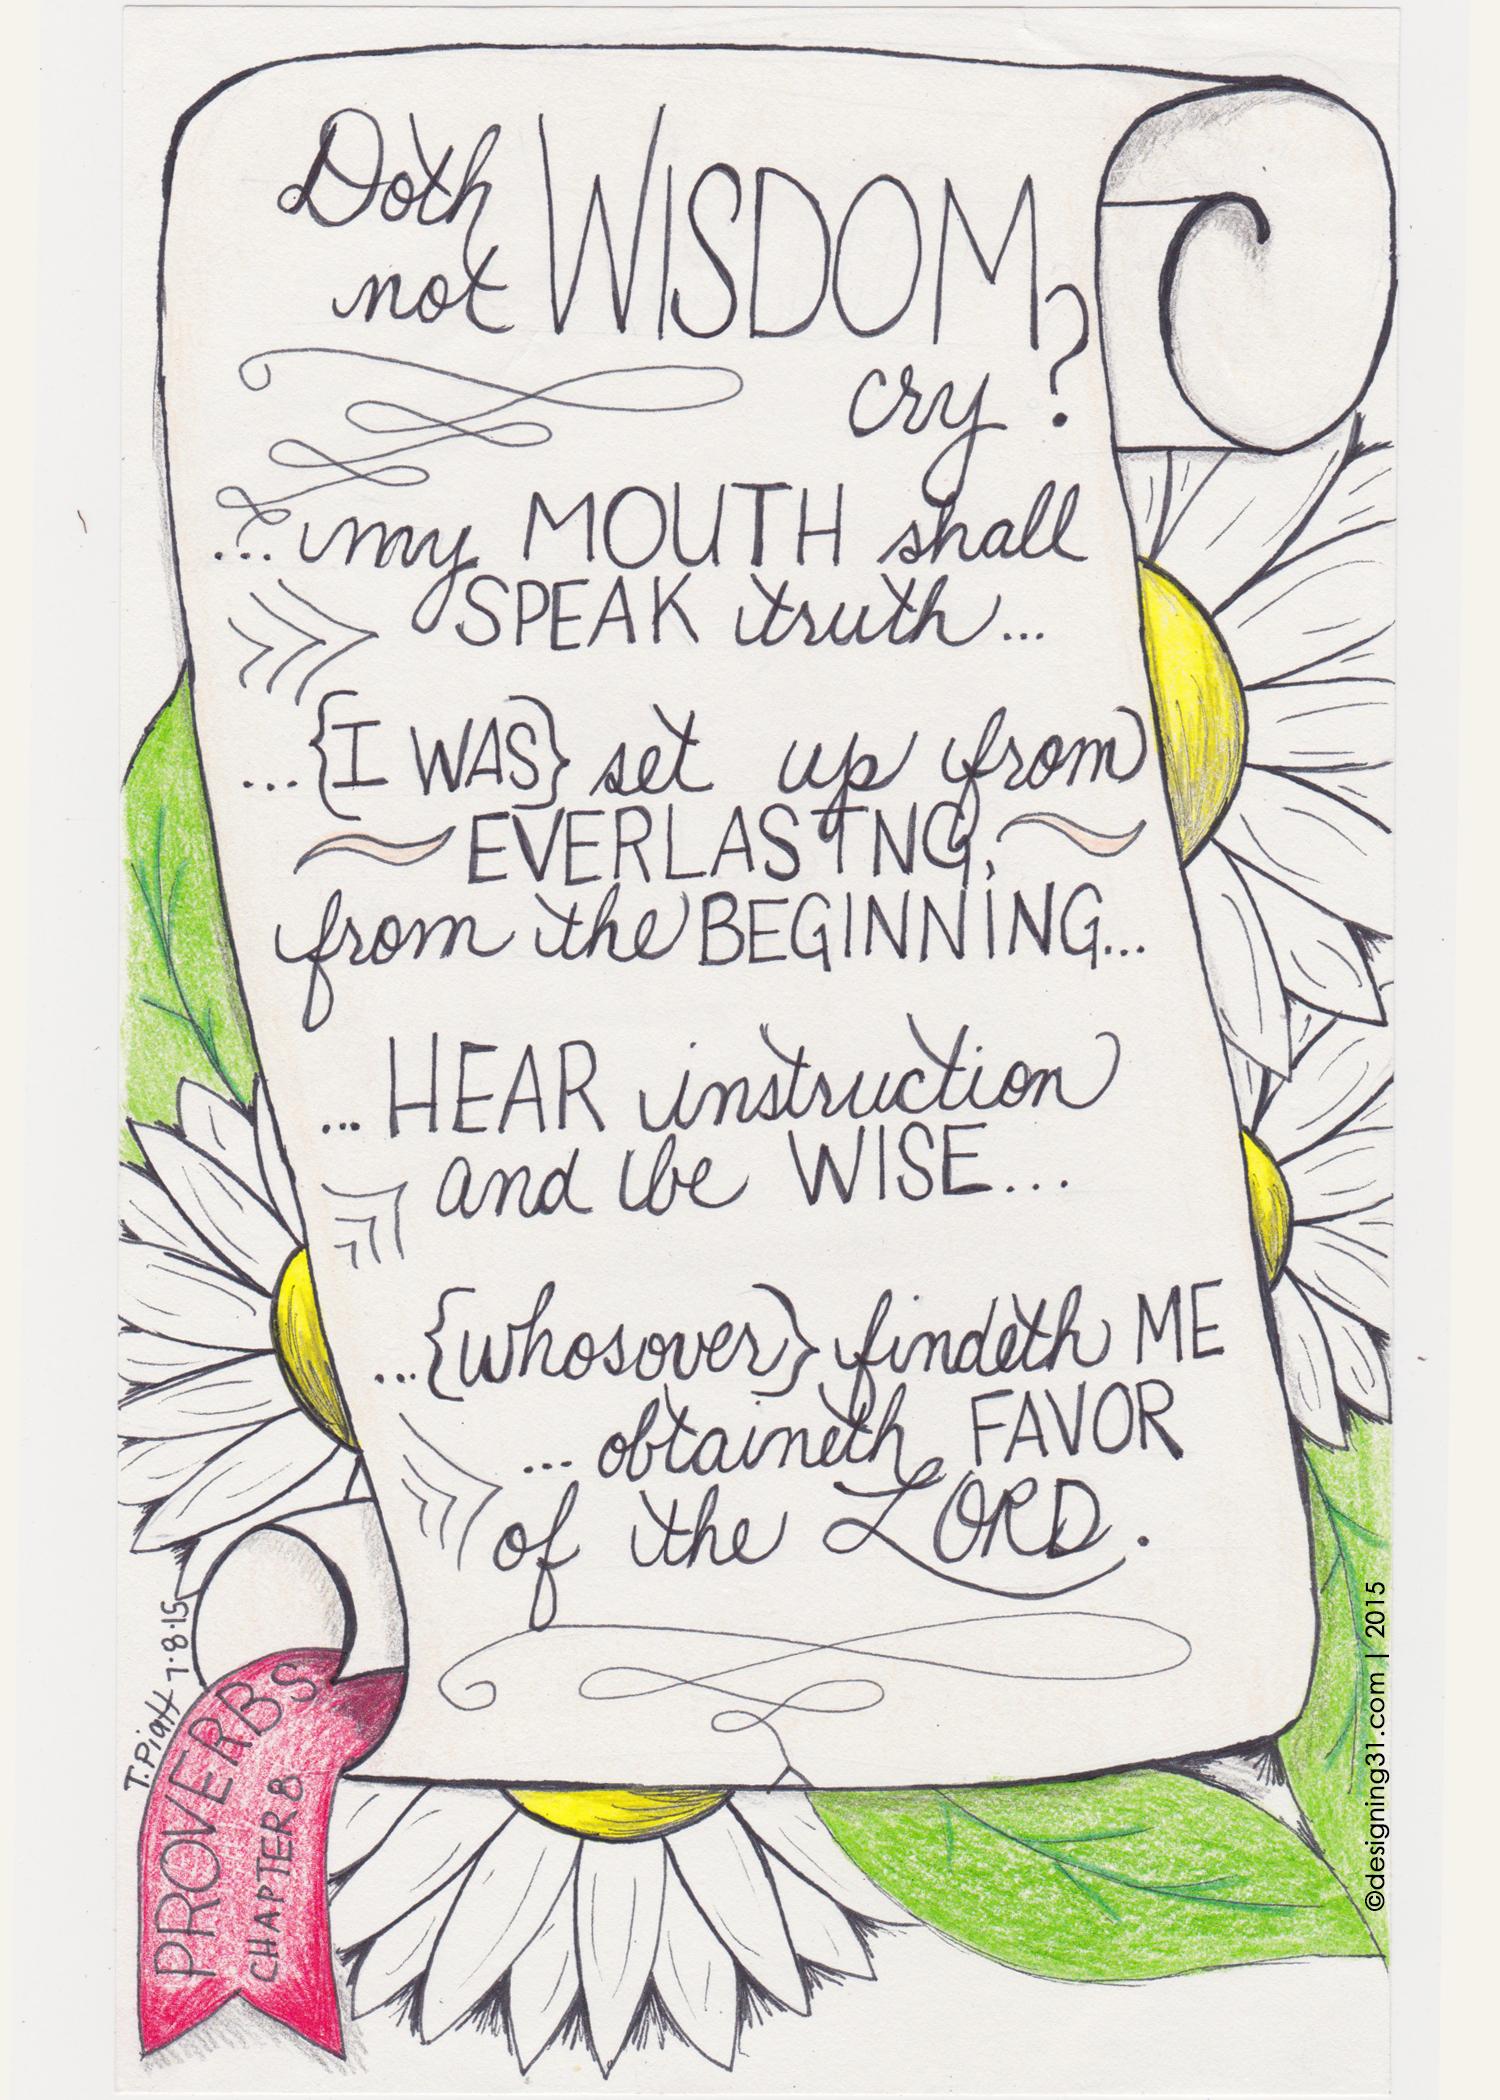 Doth
not WISDOM
cry?
...my MOUTH shall
SPEAK truth...
...{I WAS} set up from
EVERLASTNG,
from the BEGINNING...
...HEAR instruction
and be WISE...
...{whosover} findeth ME
...obtaineth FAVOR
of the LORD.
T. Piatt 7.8.15
PROVERBS
CHAPTER 8
©designing31.com | 2015